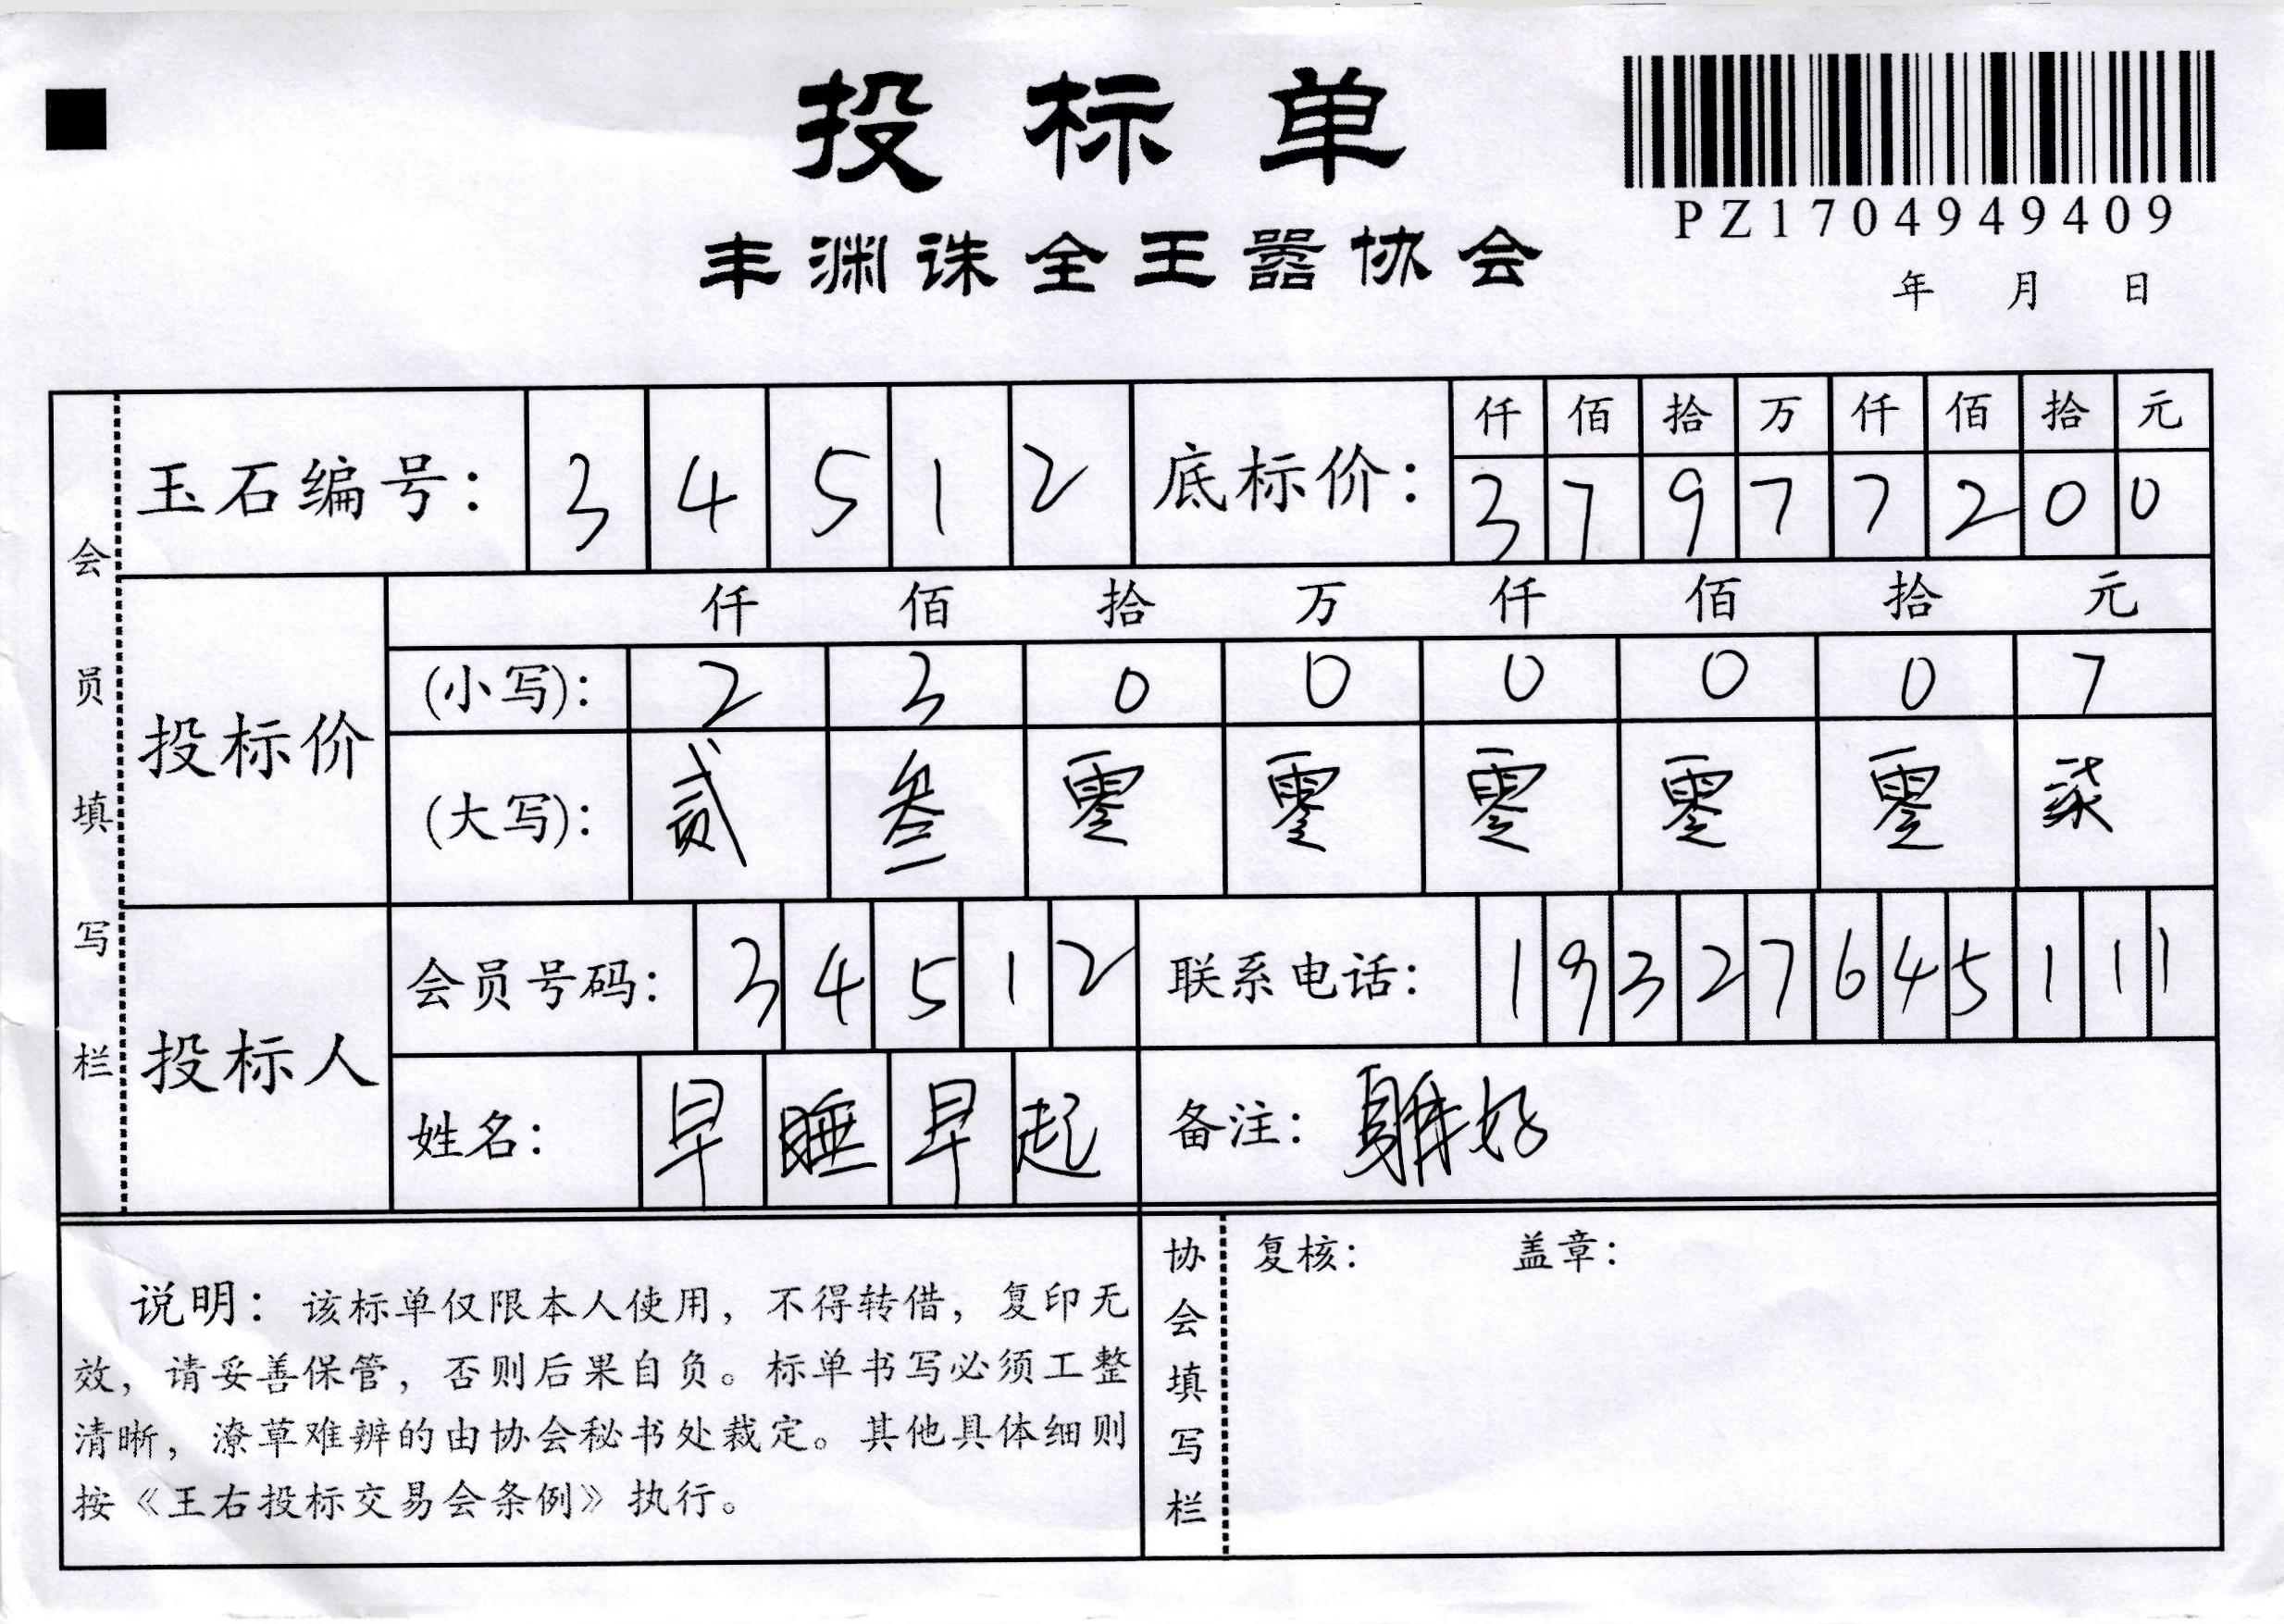 投标单
PZ1704949409
丰渊诛全王嚣协会
年 月 日
会员填写栏
玉石编号: 3 4 5 1 2 底标价: 仟 佰 拾 万 仟 佰 拾 元
3 7 9 7 7 2 0 0
投标价
仟 佰 拾 万 仟 佰 拾 元
(小写): 2 3 0 0 0 0 0 7
(大写): 贰 叁 零 零 零 零 零 柒
投标人
会员号码: 3 4 5 1 2 联系电话: 1 9 3 2 7 6 4 5 1 1 1
姓名: 早 睡 早 起 备注: 身体好
说明: 该标单仅限本人使用, 不得转借, 复印无
效, 请妥善保管, 否则后果自负。标单书写必须工整
清晰, 潦草难辨的由协会秘书处裁定。其他具体细则
按《王右投标交易会条例》执行。
协会填写栏
复核: 盖章: